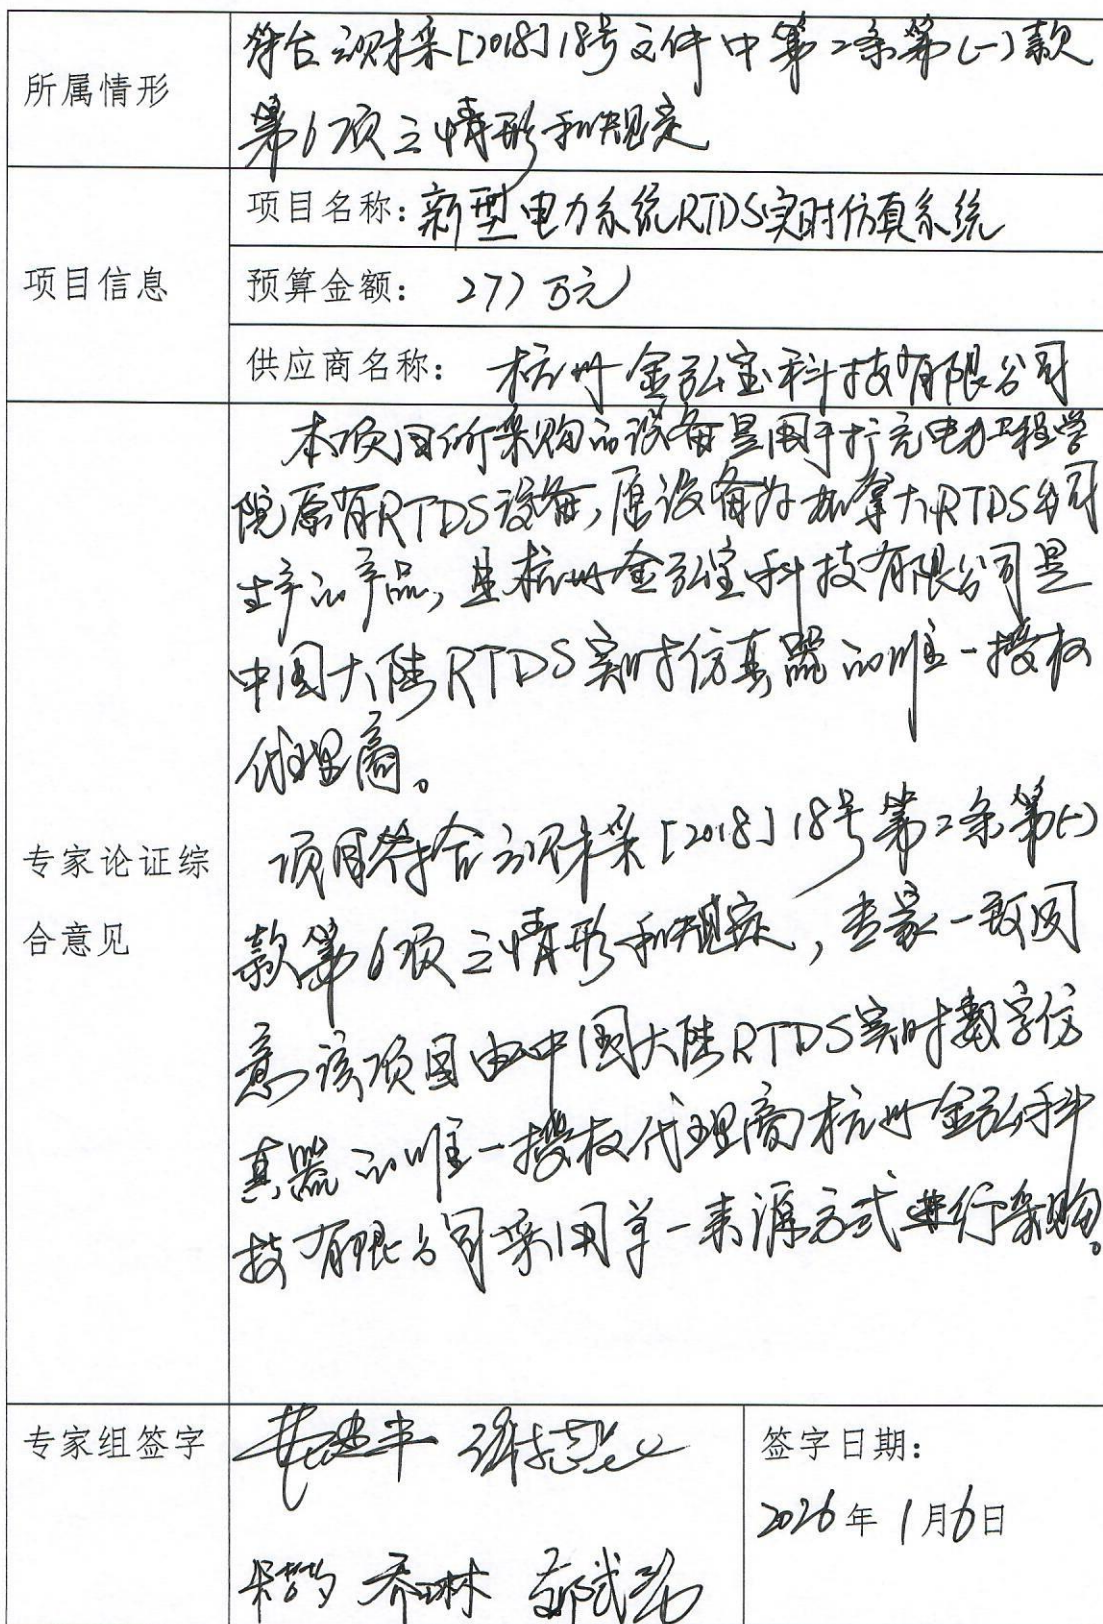 所属情形
符合云财采[2018]18号文件中第2条第(一)款
第6项之情形和规定
项目信息
项目名称:新型电力系统RTDS实时仿真系统
预算金额: 277万元
供应商名称: 杭州金弘宝科技有限公司
专家论证综
合意见
本项目所采购的设备是用于扩充电力工程学
院原有RTDS设备,原设备为加拿大RTDS公司
生产的产品,且杭州金弘宝科技有限公司是
中国大陆RTDS实时仿真器的唯一授权
代理商。
项目符合云财采[2018]18号第2条第(一)
款第6项之情形和规定,专家一致同
意该项目由中国大陆RTDS实时数字仿
真器的唯一授权代理商杭州金弘科
技有限公司采用单一来源方式进行采购。
专家组签字
乔琳
签字日期:
2026年1月6日